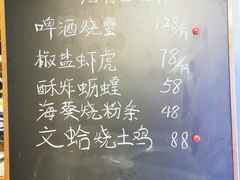 啤酒烧蟹 128/斤
椒盐虾虎 78/斤
酥炸蛎蝗 58
海葵烧粉条 48
文蛤烧土鸡 88